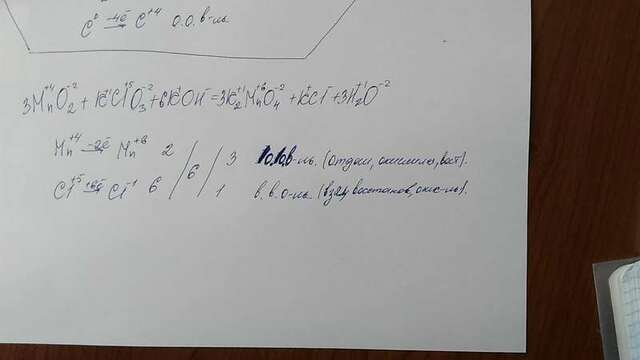 C⁰ -4ē→ C⁺⁴ о.о.в-ль
3Mn⁺⁴O₂⁻² + K⁺¹Cl⁺⁵O₃⁻² + 6K⁺¹OH⁻ = 3K₂⁺¹Mn⁺⁶O₄⁻² + K⁺Cl⁻ + 3H₂⁺¹O⁻²
Mn⁺⁴ -2ē→ Mn⁺⁶ 2 / 6 / 3 о.о.в-ль. (отдаёт, окисление, вост).
Cl⁺⁵ +6ē→ Cl⁻¹ 6 / / 1 в.в.о-ль. (взял, восстанов, окис-ль).